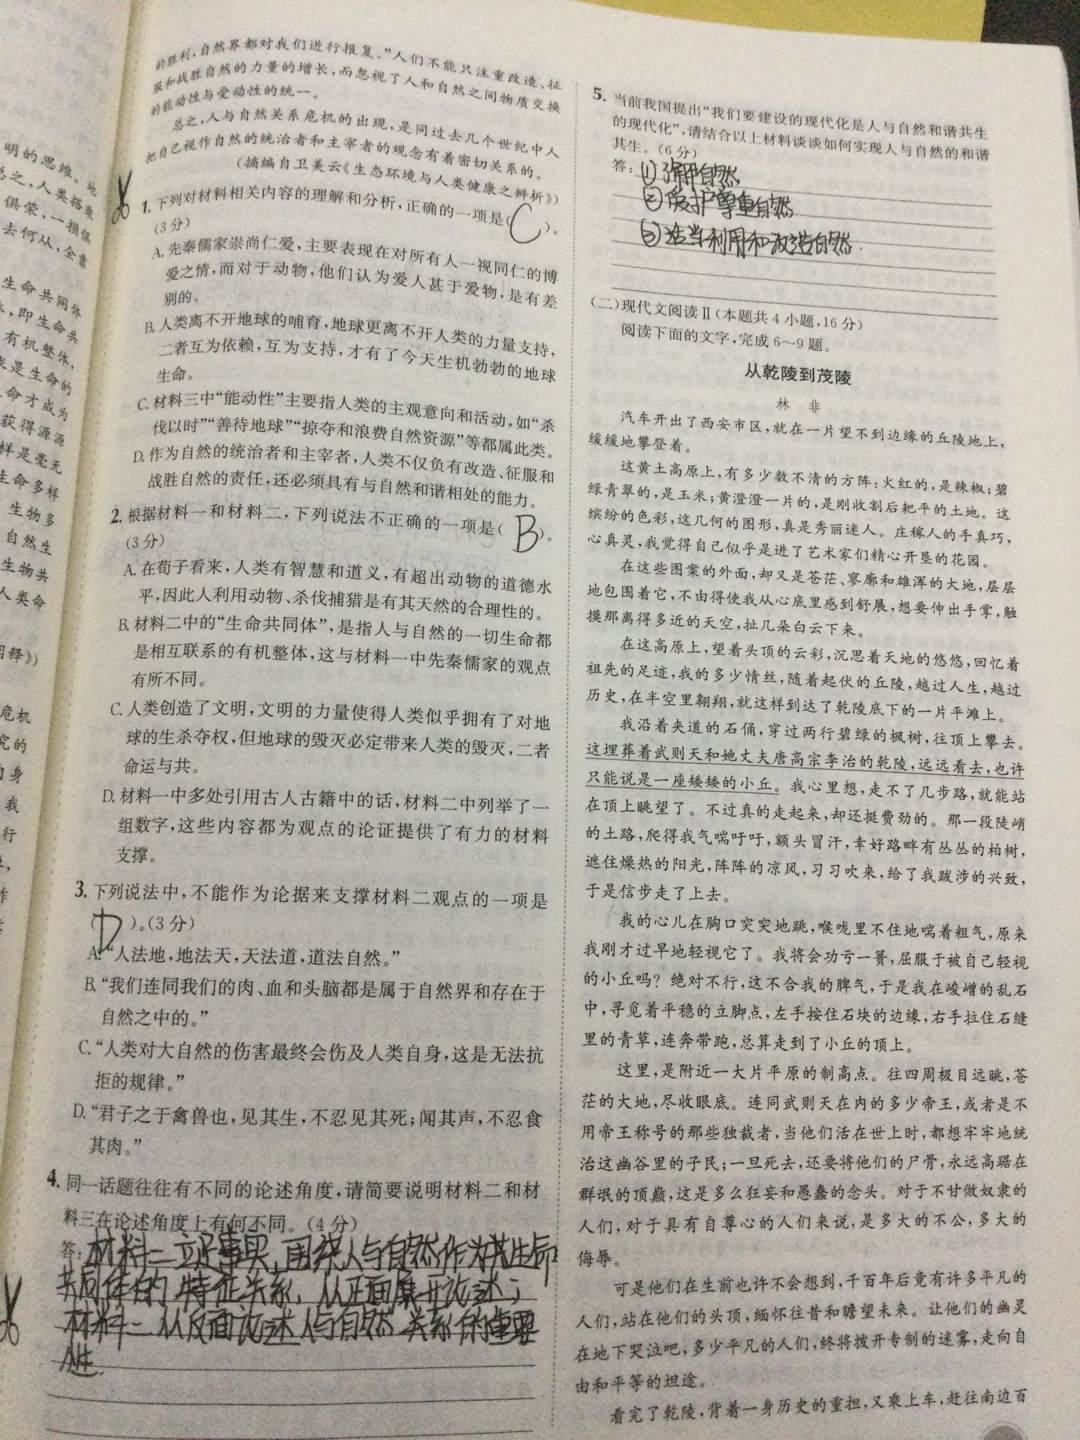 明的思维。地
总之,人类搭乘
俱荣,一损俱
去何从,全靠
生命共同体
,即生命共
有机整体,
是生命的
命才成为
获得源源
样是毫无
生命多样
生物多
自然生
生物共
人类命
释》)
危机
究的
自身
我
行
的胜利,自然界都对我们进行报复。”人们不能只注重改造、征
服和战胜自然的力量的增长,而忽视了人和自然之间物质交换
的能动性与受动性的统一。
总之,人与自然关系危机的出现,是同过去几个世纪中人
把自己视作自然的统治者和主宰者的观念有着密切关系的。
(摘编自卫美云《生态环境与人类健康之辨析》)
1. 下列对材料相关内容的理解和分析,正确的一项是( C )。
(3分)
A. 先秦儒家崇尚仁爱,主要表现在对所有人一视同仁的博
爱之情,而对于动物,他们认为爱人甚于爱物,是有差
别的。
B. 人类离不开地球的哺育,地球更离不开人类的力量支持,
二者互为依赖,互为支持,才有了今天生机勃勃的地球
生命。
C. 材料三中“能动性”主要指人类的主观意向和活动,如“杀
伐以时”“善待地球”“掠夺和浪费自然资源”等都属此类。
D. 作为自然的统治者和主宰者,人类不仅负有改造、征服和
战胜自然的责任,还必须具有与自然和谐相处的能力。
2. 根据材料一和材料二,下列说法不正确的一项是( B )。
(3分)
A. 在荀子看来,人类有智慧和道义,有超出动物的道德水
平,因此人利用动物、杀伐捕猎是有其天然的合理性的。
B. 材料二中的“生命共同体”,是指人与自然的一切生命都
是相互联系的有机整体,这与材料一中先秦儒家的观点
有所不同。
C. 人类创造了文明,文明的力量使得人类似乎拥有了对地
球的生杀夺权,但地球的毁灭必定带来人类的毁灭,二者
命运与共。
D. 材料一中多处引用古人古籍中的话,材料二中列举了一
组数字,这些内容都为观点的论证提供了有力的材料
支撑。
3. 下列说法中,不能作为论据来支撑材料二观点的一项是
( D )。(3分)
A. “人法地,地法天,天法道,道法自然。”
B. “我们连同我们的肉、血和头脑都是属于自然界和存在于
自然之中的。”
C. “人类对大自然的伤害最终会伤及人类自身,这是无法抗
拒的规律。”
D. “君子之于禽兽也,见其生,不忍见其死;闻其声,不忍食
其肉。”
4. 同一话题往往有不同的论述角度,请简要说明材料二和材
料三在论述角度上有何不同。(4分)
答:材料二立足事实,围绕人与自然作为共生命
共同体的特征关系,从正面展开论述;
材料三从反面论述人与自然关系的重要
性
5. 当前我国提出“我们要建设的现代化是人与自然和谐共生
的现代化”,请结合以上材料谈谈如何实现人与自然的和谐
共生。(6分)
答:(1)了解自然
(2)爱护尊重自然
(3)适当利用和改造自然.
(二)现代文阅读Ⅱ(本题共4小题,16分)
阅读下面的文字,完成6~9题。
从乾陵到茂陵
林 非
汽车开出了西安市区,就在一片望不到边缘的丘陵地上,
缓缓地攀登着。
这黄土高原上,有多少数不清的方阵:火红的,是辣椒;碧
绿青翠的,是玉米;黄澄澄一片的,是刚收割后耙平的土地。这
缤纷的色彩,这几何的图形,真是秀丽迷人。庄稼人的手真巧,
心真灵,我觉得自己似乎是进了艺术家们精心开垦的花园。
在这些图案的外面,却又是苍茫、寥廓和雄浑的大地,层层
地包围着它,不由得使我从心底里感到舒展,想要伸出手掌,触
摸那离得多近的天空,扯几朵白云下来。
在这高原上,望着头顶的云彩,沉思着天地的悠悠,回忆着
祖先的足迹,我的多少情丝,随着起伏的丘陵,越过人生,越过
历史,在半空里翱翔,就这样到达了乾陵底下的一片平滩上。
我沿着夹道的石俑,穿过两行碧绿的枫树,往顶上攀去。
这埋葬着武则天和她丈夫唐高宗李治的乾陵,远远看去,也许
只能说是一座矮矮的小丘。我心里想,走不了几步路,就能站
在顶上眺望了。不过真的走起来,却还挺费劲的。那一段陡峭
的土路,爬得我气喘吁吁,额头冒汗,幸好路畔有丛丛的柏树,
遮住燥热的阳光,阵阵的凉风,习习吹来,给了我跋涉的兴致,
于是信步走了上去。
我的心儿在胸口突突地跳,喉咙里不住地喘着粗气,原来
我刚才过早地轻视它了。我将会功亏一篑,屈服于被自己轻视
的小丘吗?绝对不行,这不合我的脾气,于是我在峻嶒的乱石
中,寻觅着平稳的立脚点,左手按住石块的边缘,右手拉住石缝
里的青草,连奔带跑,总算走到了小丘的顶上。
这里,是附近一大片平原的制高点。往四周极目远眺,苍
茫的大地,尽收眼底。连同武则天在内的多少帝王,或者是不
用帝王称号的那些独裁者,当他们活在世上时,都想牢牢地统
治这幽谷里的子民;一旦死去,还要将他们的尸骨,永远高踞在
群氓的顶巅,这是多么狂妄和愚蠢的念头。对于不甘做奴隶的
人们,对于具有自尊心的人们来说,是多大的不公,多大的
侮辱。
可是他们在生前也许不会想到,千百年后竟有许多平凡的
人们,站在他们的头顶,缅怀往昔和瞻望未来。让他们的幽灵
在地下哭泣吧,多少平凡的人们,终将拨开专制的迷雾,走向自
由和平等的坦途。
看完了乾陵,背着一身历史的重担,又乘上车,赶往南边百